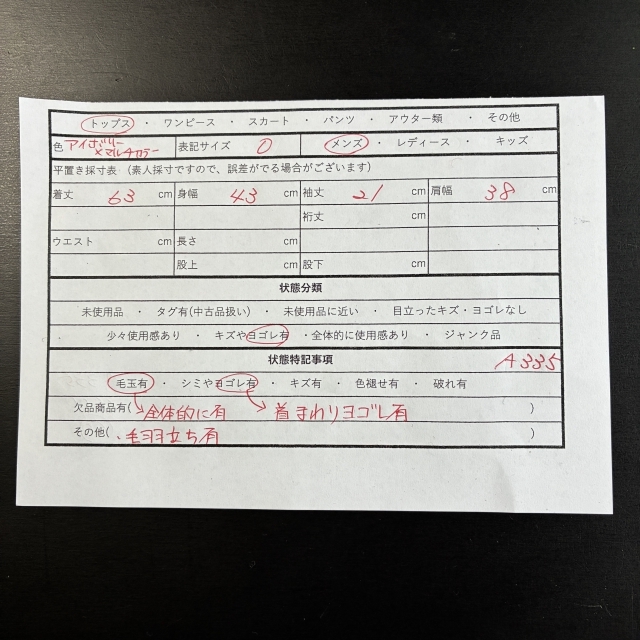 トップス ・ ワンピース ・ スカート ・ パンツ ・ アウター類 ・ その他
色 アイボリー×マルチカラー 表記サイズ 0 メンズ ・ レディース ・ キッズ
平置き採寸表 (素人採寸ですので、誤差がでる場合がございます)
着丈 63 cm 身幅 43 cm 袖丈 21 cm 肩幅 38 cm
cm cm 裄丈 cm
ウエスト cm 長さ cm
股上 cm 股下 cm
状態分類
未使用品 ・ タグ有(中古品扱い) ・ 未使用品に近い ・ 目立ったキズ・ヨゴレなし
少々使用感あり ・ キズやヨゴレ有 ・全体的に使用感あり ・ ジャンク品
状態特記事項 A335
毛玉有 ・ シミやヨゴレ有 ・ キズ有 ・ 色褪せ有 ・ 破れ有
欠品商品有( 全体的に有 首まわりヨゴレ有 )
その他( 、毛羽立ち有 )